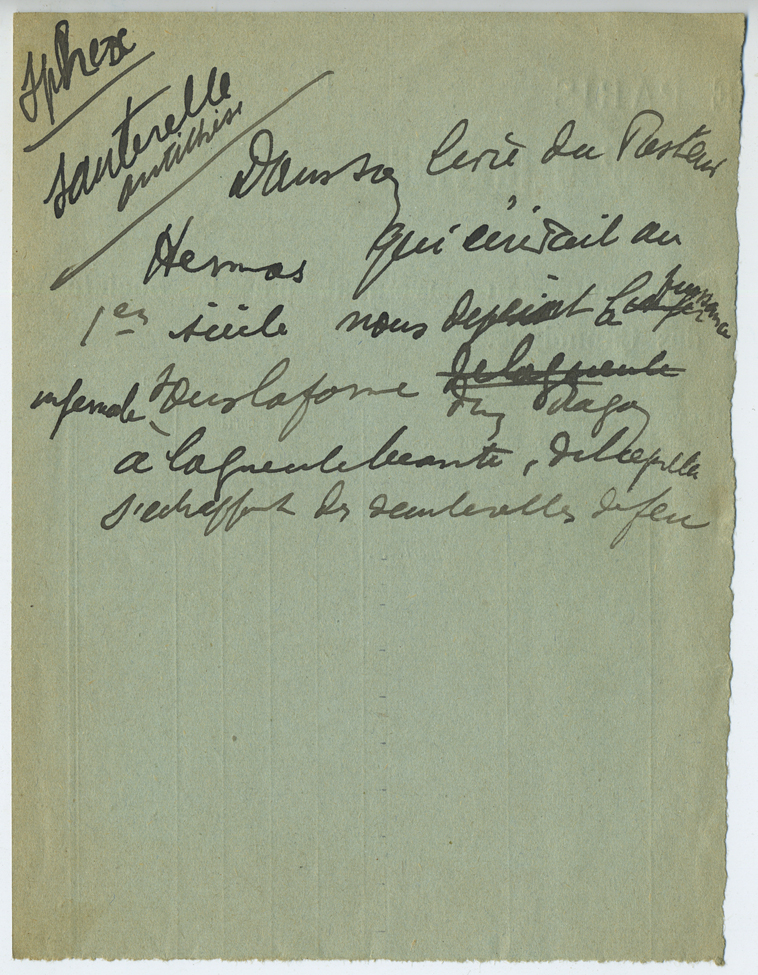 Sphex
Sauterelle
antithèse
Dans son livre du Pasteur
Hermas qui écrivait au
1er siècle nous depeint la puissance
infernale sous la forme de la gueule
d'un dragon
à la gueule beante, de laquelle
s'echappent des sauterelles de feu